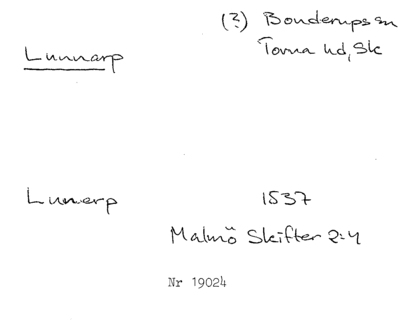 (?) Bonderups sn
Lunnarp
Torna hd, Sk
Lunerp 1537
Malmö Skifter 2:4
Nr 19024